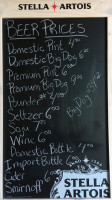 STELLA ARTOIS
BEER PRICES
Domestic Pint 4.00
Domestic Big Dog
Premium Pint 6
Premium Big Dog
Pounder
Seltzer 6.00
Big Dog
Soju 7.00
Wine 6
Domestic Bottle
Import Bottle 6
Cider
Smirnoff
STELLA
ARTOIS